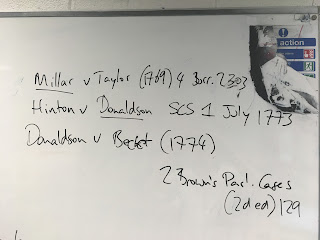 Millar v Taylor (1769) 4 Burr. 2303
Hinton v Donaldson SCS 1 July 1773
Donaldson v Becket (1774)
2 Brown's Parl. Cases
(2d ed) 129
action